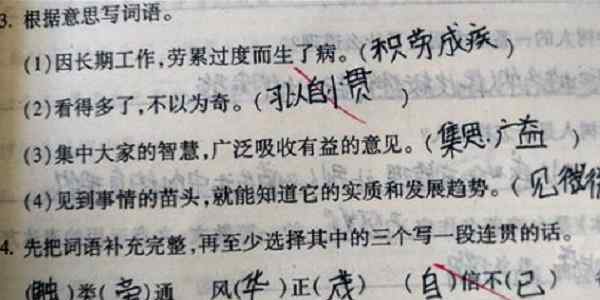 3. 根据意思写词语。
(1)因长期工作,劳累过度而生了病。(积劳成疾)
(2)看得多了,不以为奇。(习以自贯)
(3)集中大家的智慧,广泛吸收有益的意见。(集思广益)
(4)见到事情的苗头,就能知道它的实质和发展趋势。(见微
4. 先把词语补充完整,再至少选择其中的三个写一段连贯的话。
(触)类(旁)通 风(华)正(茂) (自)信不(己)